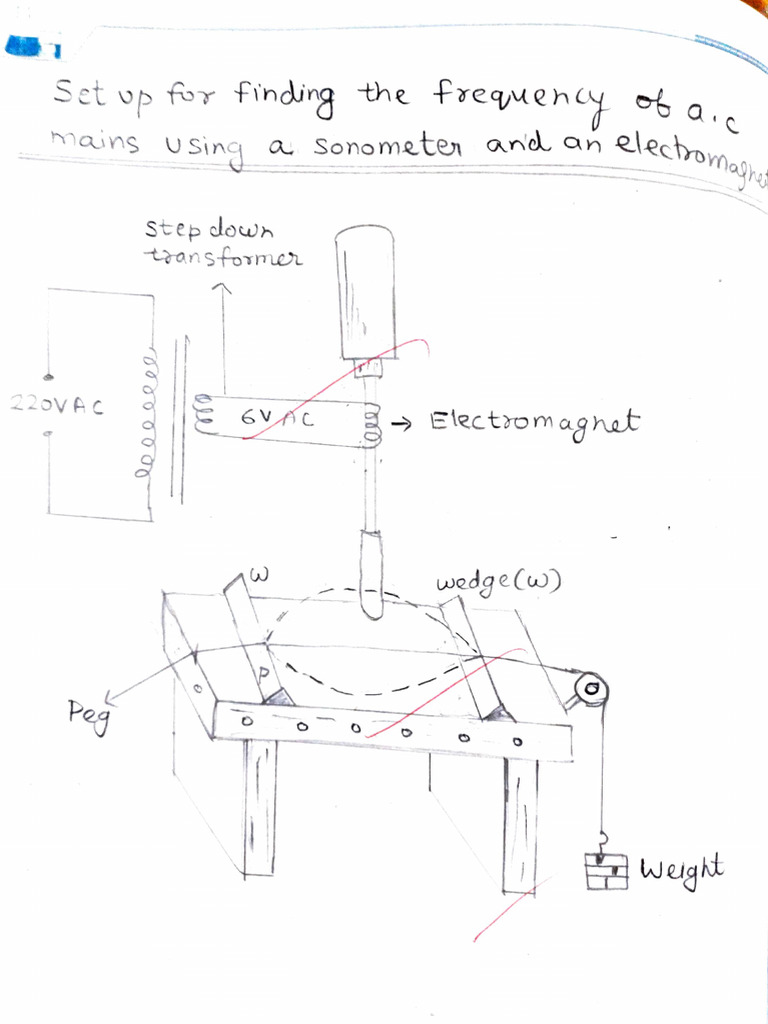 Set up for finding the frequency of a.c
mains using a sonometer and an electromagnet
step down
transformer
220V AC
6V AC
→ Electromagnet
W
wedge(w)
P
Peg
Weight